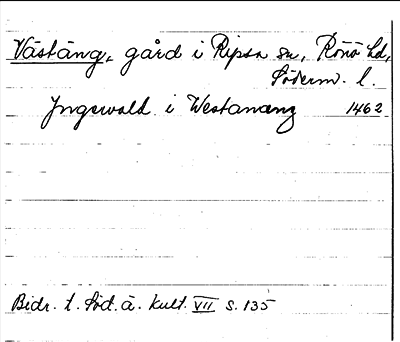 Västäng, gård i Ripsa sn, Rönö hd,
Söderm. l.
Yngewald i Westanæng 1462
Bidr. t. Söd. ä. kult. VII s. 135